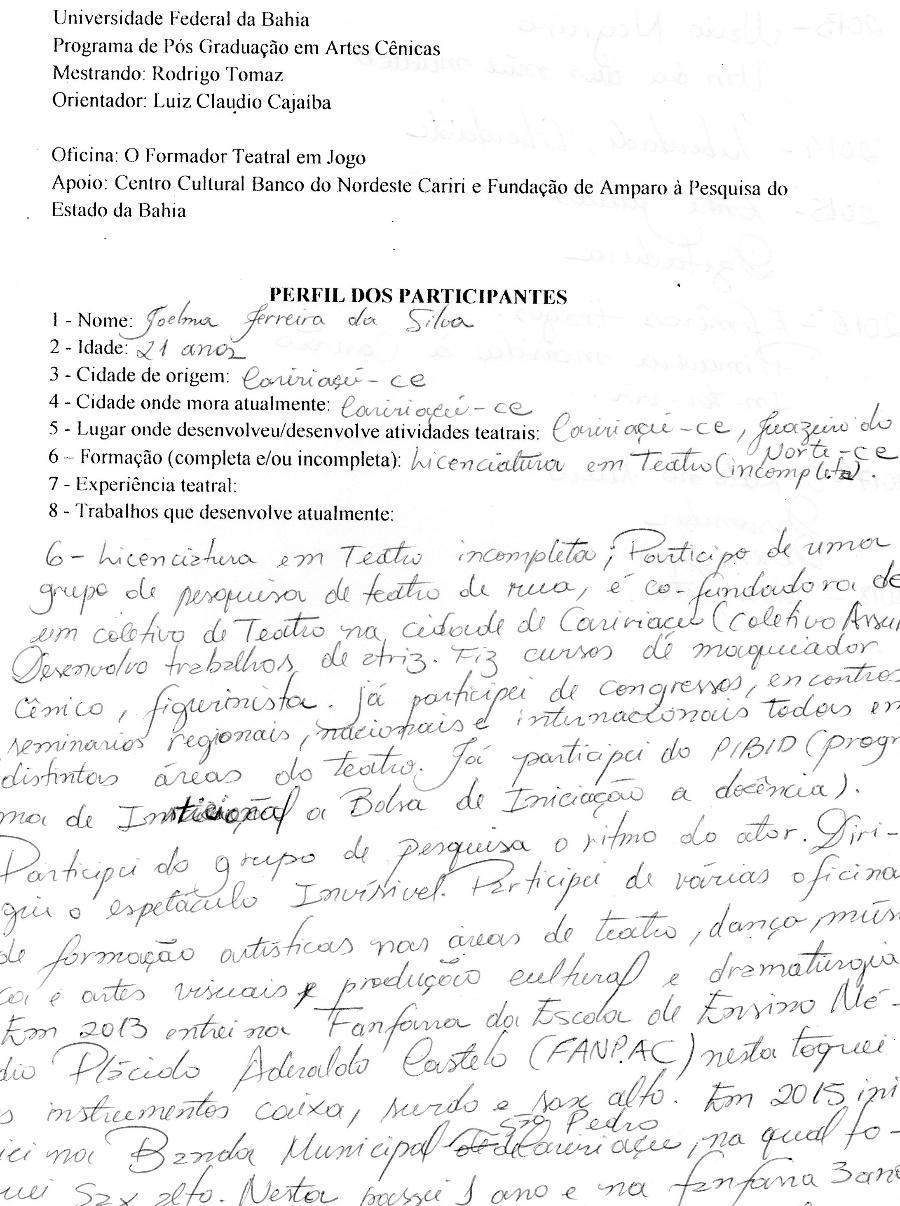 Universidade Federal da Bahia
Programa de Pós Graduação em Artes Cênicas
Mestrando: Rodrigo Tomaz
Orientador: Luiz Claudio Cajaiba
Oficina: O Formador Teatral em Jogo
Apoio: Centro Cultural Banco do Nordeste Cariri e Fundação de Amparo à Pesquisa do
Estado da Bahia
PERFIL DOS PARTICIPANTES
1 - Nome: Joelma Ferreira da Silva
2 - Idade: 21 anos
3 - Cidade de origem: Caririaçú - ce
4 - Cidade onde mora atualmente: Caririaçú - ce
5 - Lugar onde desenvolveu/desenvolve atividades teatrais: Caririaçú - ce, Juazeiro do
Norte - ce
6 - Formação (completa e/ou incompleta): Licenciatura em Teatro (incompleta).
7 - Experiência teatral:
8 - Trabalhos que desenvolve atualmente:
6 - Licenciatura em Teatro incompleta; Participo de uma
grupo de pesquisa de teatro de rua, é co-fundadora de
um coletivo de Teatro na cidade de Caririaçu (coletivo
Desenvolvo trabalhos de atriz. Fiz cursos de maquiador
Cênico, figurinista. Já participei de congressos, encontros
seminarios regionais, nacionais e internacionais todas em
distintas áreas do teatro. Já participei do PIBID (progr
ma de Institicional a Bolsa de Iniciação a docência).
Participei do grupo de pesquisa o ritmo do ator. Diri-
giu o espetáculo Invisivel. Participei de várias oficina
de formação artísticas nas áreas de teatro, dança, músi
ca e artes visuais, produção cultural e dramaturgia
Em 2013 entrei na Fanfarra da Escola de Ensino Mé-
dio Plácido Aderaldo Castelo (FANPAC) nesta toquei
s instrumentos caixa, surdo e sax alto. Em 2015 ini
ici na Banda Municipal São Pedro de Caririaçu, na qual to-
quei sax alto. Nesta passei 1 ano e na fanfarra 3 ano